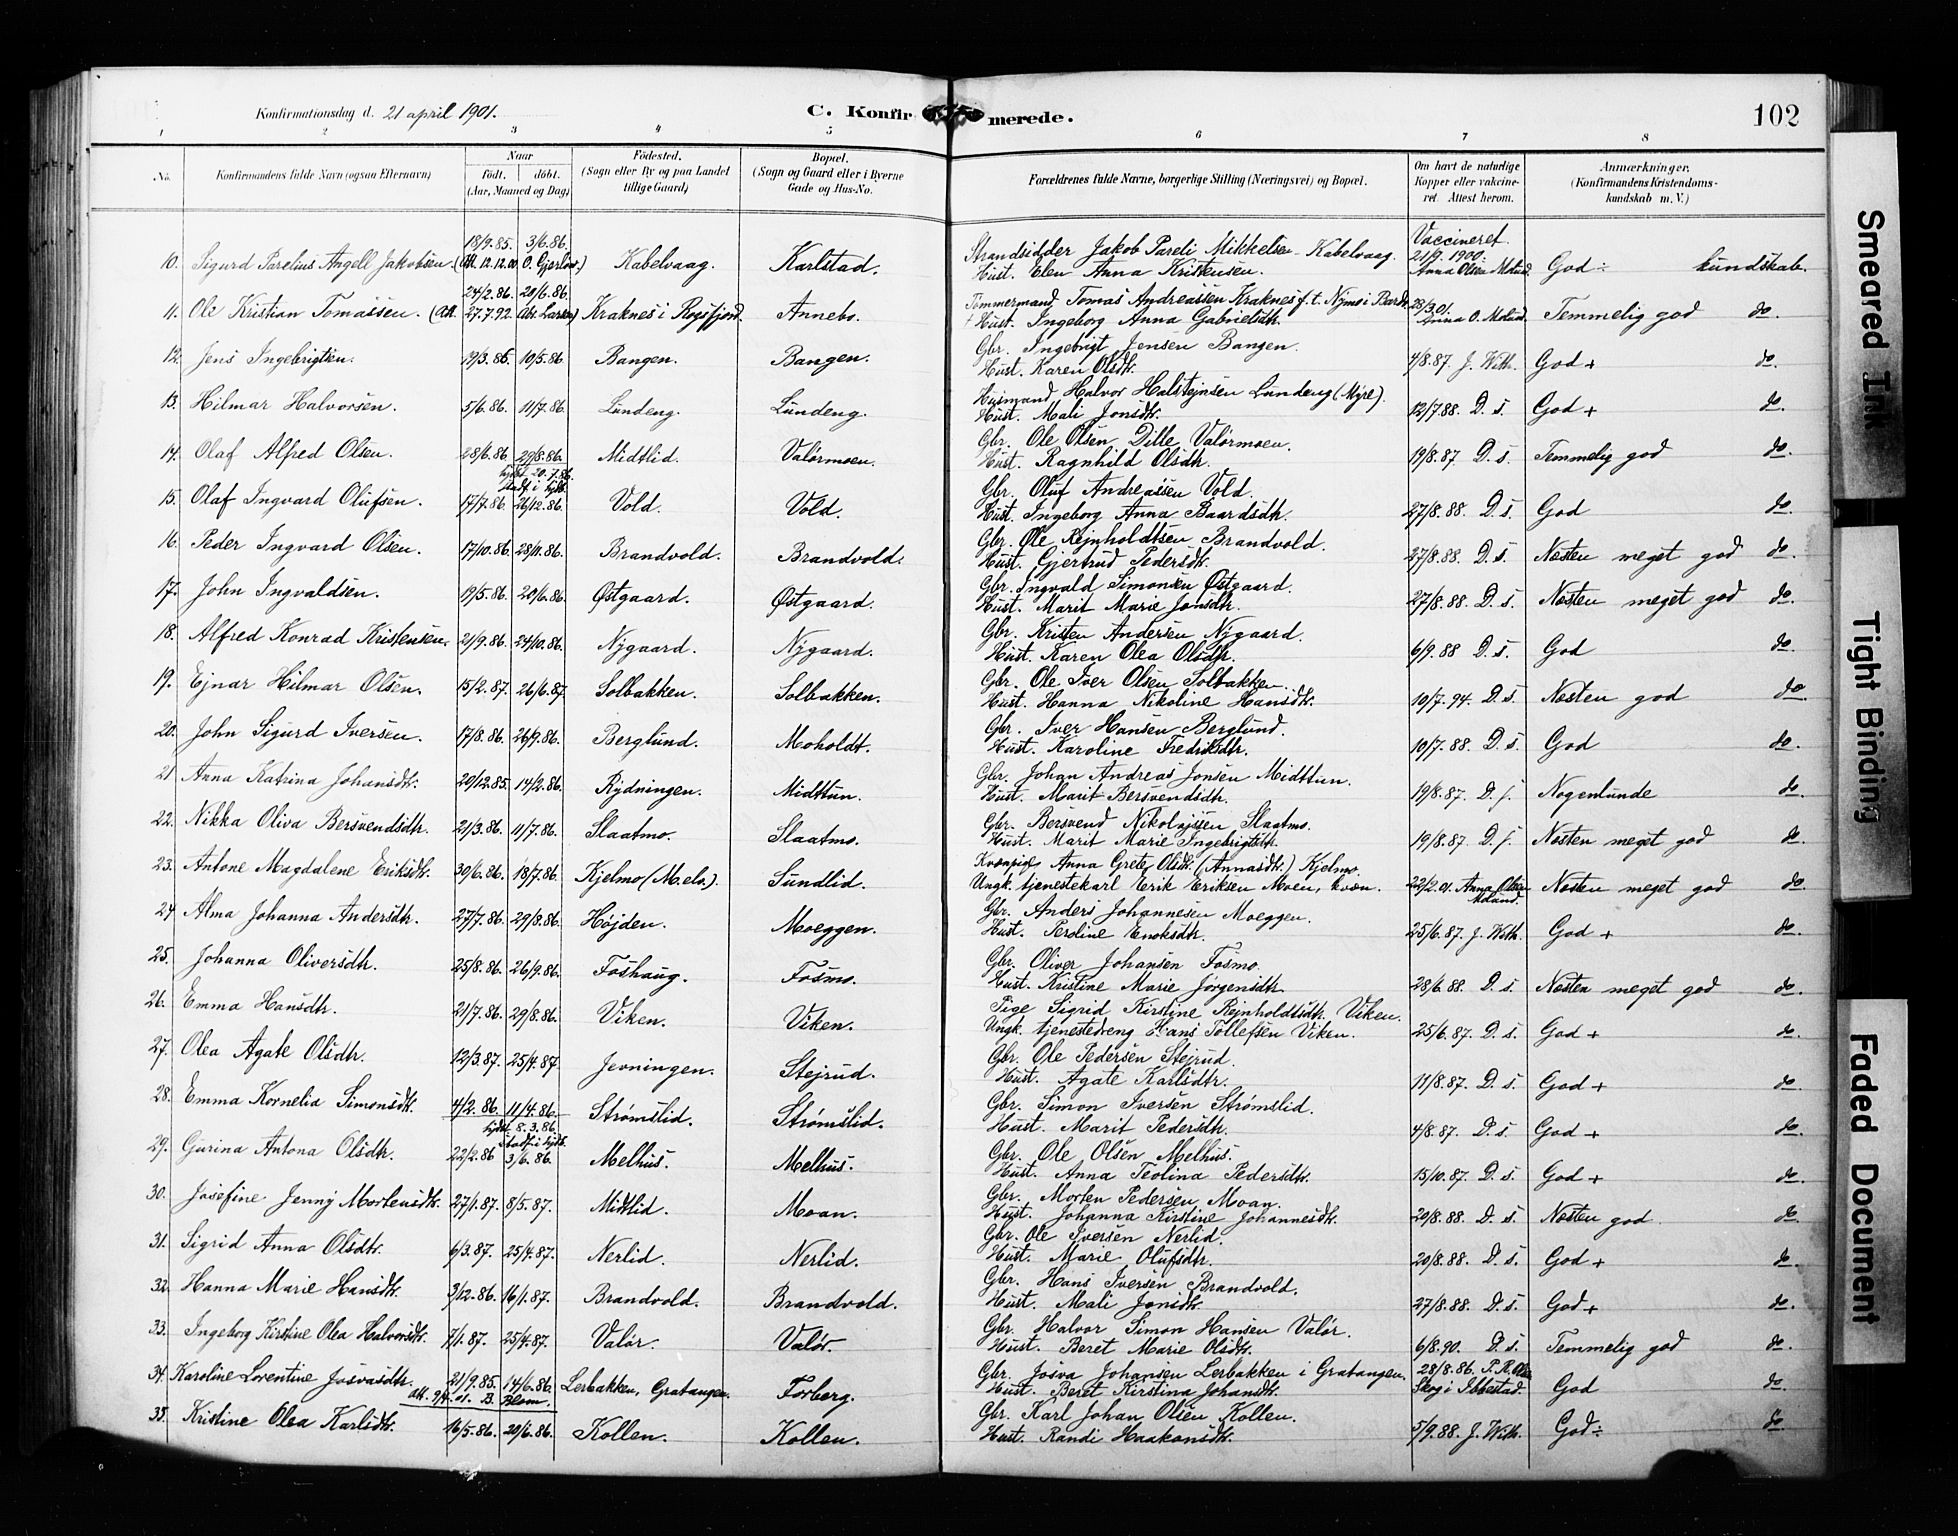 Konfirmationsdag d. 21 april 1901.
C. Konfirmerede.
102
1 2 3 4 5 6 7 8
No.
Konfirmandens fulde Navn (ogsaa Efternavn)
Naar
født. døbt.
(Aar, Maaned og Dag)
Fødested.
(Sogn eller By og paa Landet
tillige Gaard)
Bopæl.
(Sogn og Gaard eller i Byerne
Gade og Hus-No.
Forældrenes fulde Navne, borgerlige Stilling (Næringsvei) og Bopæl.
Om havt de naturlige
Kopper eller vakcine-
ret. Attest herom.
Anmærkninger.
(Konfirmandens Kristendoms-
kundskab m. V.)
10. Sigurd Parelius Angell Jakobsen. 18/9.85. 3/6.86. (Att. 12.12.00 O. Gjerløw.) Kabelvaag. Karlstad. Strandsidder Jakob Pareli Mikkelsen Kabelvaag. Hust. Elen Anna Kristensen. Vaccineret 21/9.1900. Anna Olsen Moland. God ÷ kundskab.
11. Ole Kristian Tomassen. 24/2.86. 20/6.86. (Att. 27.7.92. Abr. Larsen) Kraknes i Røgsfjord. Annebo. Tømmermand Tomas Andreassen Kraknes f.t. Nymo i Bardo + Hust. Ingeborg Anna Gabrielsdtr. 28/3.01. Anna O. Moland. Temmelig god do.
12. Jens Ingebrigtsen. 19/3.86. 10/5.86 Bangen. Bangen. Gbr. Ingebrigt Jensen Bangen. Hust. Karen Olsdtr. 4/8.87. J. With. God + do
13. Hilmar Halvorsen. 5/6.86. 11/7.86. Lundeng. Lundeng. Husmand Halvor Halstejnsen Lundeng (Myre). Hust. Mali Jonsdtr. 12/7.88. D. s. God + do.
14. Olaf Alfred Olsen. 28/6.86. 29/8.86. Midtlid. Valørmoen. Gbr. Ole Olsen Dille Valørmoen. Hust. Ragnhild Olsdtr. 19/8.87. D. s. Temmelig god do.
hjdt. 20.7.86.
stadf. i kirk.
15. Olaf Ingvard Olufsen. 17/7.86. 26/12.86. Vold. Vold. Gbr. Oluf Andreassen Vold. Hust. Ingeborg Anna Baardsdtr. 27/8.88. D. s. God do.
16. Peder Ingvard Olsen. 17/10.86. 28/11.86. Brandvold. Brandvold. Gbr. Ole Rejnholdtsen Brandvold. Hust. Gjertrud Pedersdtr. 27/8.88. D. s. Næsten meget god do.
17. John Ingvaldsen. 19/5.86. 20/6.86. Østgaard. Østgaard. Gbr. Ingvald Simonsen Østgaard. Hust. Marit Marie Jonsdtr. 27/8.88. D. s. Næsten meget god do.
18. Alfred Konrad Kristensen. 21/9.86. 24/10.86. Nygaard. Nygaard. Gbr. Kristen Andersen Nygaard. Hust. Karen Olea Olsdtr. 6/9.88 D. s. God do.
19. Ejnar Hilmar Olsen. 15/2.87. 26/6.87. Solbakken. Solbakken. Gbr. Ole Iver Olsen Solbakken. Hust. Hanna Nikoline Hansdtr. 10/7.94. D. s. Næsten god do.
20. John Sigurd Iversen. 17/8.86. 26/9.86. Berglund. Moholdt. Gbr. Iver Hansen Berglund. Hust. Karoline Fredriksdtr. 10/7.88. D. s. God do.
21. Anna Katrina Johansdtr. 20/12.85. 14/2.86. Rydningen. Midttun. Gbr. Johan Andreas Jonsen Midttun. Hust. Marit Bersvendsdtr. 19/8.87. D. s. Nogenlunde do.
22. Nikka Oliva Bersvendsdtr. 21/3.86. 11/7.86. Slaatmo. Slaatmo. Gbr. Bersvend Nikolajssen Slaatmo. Hust. Marit Marie Ingebrigtsdtr. 19/8.87. D. s. Næsten meget god do.
23. Antone Magdalene Eriksdtr. 30/6.86. 18/7.86. Kjelmo (M.elv.). Sundlid. Kvænpige Anna Grete Olsdtr. (Annasdtr.) Kjelmo. Ungk. tjenestekarl Erik Eriksen Moen, kvæn. 22/2.01. Anna Olsen Moland. Næsten meget god do.
24. Alma Johanna Andersdtr. 27/7.86. 29/8.86. Højden. Moeggen. Gbr. Anders Johannesen Moeggen. Hust. Peroline Enoksdtr. 25/6.87. J. With. God + do.
25. Johanna Oliversdtr. 25/8.86. 26/9.86. Foshaug. Fosmo. Gbr. Oliver Johansen Fosmo. Hust. Kristine Marie Jørgensdtr. 28/6.88. D. s. Næsten meget god do.
26. Emma Hansdtr. 21/7.86. 29/8.86. Viken. Viken. Pige Sigrid Kirstine Rejnholdtsdtr. Viken. Ungk. tjenestedreng Hans Tollefsen Viken. 25/6.87. D. s. God + do.
27. Olea Agate Olsdtr. 12/3.87. 25/4.87. Jevningen. Stejrud. Gbr. Ole Pedersen Stejrud. Hust. Agate Karlsdtr. 11/8.87. D. s. God + do.
28. Emma Kornelia Simonsdtr. 4/2.86. 11/4.86. Strømslid. Strømslid. Gbr. Simon Iversen Strømslid. Hust. Marit Pedersdtr. 4/8.87. D. s. God + do.
hjdt. 8.3.86.
stadf. i kirk.
29. Gurina Antona Olsdtr. 22/2.86 3/6.86. Melhus. Melhus. Gbr. Ole Olsen Melhus. Hust. Anna Teolina Pedersdtr. 15/10.87. D. s. God + do.
30. Josefine Jenny Mortensdtr. 27/1.87. 8/5.87. Midtlid. Moan. Gbr. Morten Pedersen Moan. Hust. Johanna Kirstine Johannesdtr. 20/8.88. D. s. Næsten god do.
31. Sigrid Anna Olsdtr. 6/3.87. 25/4.87. Nerlid. Nerlid. Gbr. Ole Iversen Nerlid. Hust. Marie Olufsdtr. 20/8.88. D. s. God + do.
32. Hanna Marie Hansdtr. 3/12.86. 16/1.87. Brandvold. Brandvold. Gbr. Hans Iversen Brandvold. Hust. Mali Jonsdtr. 27/8.88. D. s. God + do.
33. Ingeborg Kirstine Olea Halvorsdtr. 7/1.87. 25/4.87. Valør. Valør. Gbr. Halvor Simon Hansen Valør. Hust. Beret Marie Olsdtr. 6/8.90. D. s. Temmelig god do
34. Karoline Lorentine Josvasdtr. 21/9.85. 14/6.86. att. 9/4.01. B. Blom. Lerbakken, Gratangen. Forberg. Gbr. Josva Johansen Lerbakken i Gratangen. Hust. Beret Kirstina Johansdtr. 28/8.86. P. R. Olsen Skog i Ibbestad. God do.
35. Kristine Olea Karlsdtr. 16/5.86. 20/6.86. Kollen. Kollen. Gbr. Karl Johan Olsen Kollen. Hust. Randi Haakonsdtr. 5/9.88. J. With. God ÷ do.
Smeared Ink
Tight Binding
Faded Document